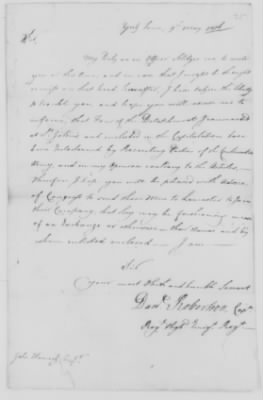 York town, 9th May 1776
Sir,
My Duty as an Officer Obliges me to write
you at this time, and in case that I might be thought
remiss on that head hereafter, I have taken the liberty
to trouble you, and hope you will excuse me to
inform, that Four of the Detachment I commanded
at St. Johns, and included in the Capitulation have
been Entertained by Recruiting Parties of the Continental
Army, and in my Opinion contrary to the
Therefore I hope you will be pleased with
of Congress to send these Men to Lancaster to Join
their Company, that they may be forthcoming in case
of an Exchange or otherwise, their Names and by
whom enlisted enclosed. I am
Sir
your most Obedt and humble Servant
Danl Robertson, Capt
Royl Highd Emigt Regt
John Hancock Esqr